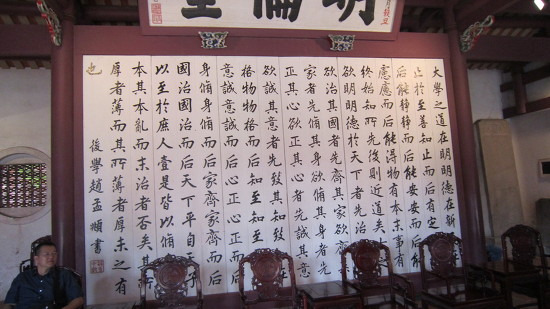 明倫堂
大學之道在明明德在新
止於至善知止而后有定
后能靜靜而后能安安
慮慮而后能得物有本末事有
終始知所先後則近道矣古
欲明明德於天下者先治
欲治其國者先齊其家欲
家者先脩其身欲脩其身者先
正其心欲正其心者先誠其意
欲誠其意者先致其知致
格物物格而后知至知至
意誠意誠而后心正心正而
身脩身脩而后家齊家齊而后
國治國治而后天下平自天子
以至於庶人壹是皆以脩
本其本亂而末治者否矣其所
厚者薄而其所薄者厚未之有
也
後學趙孟頫書